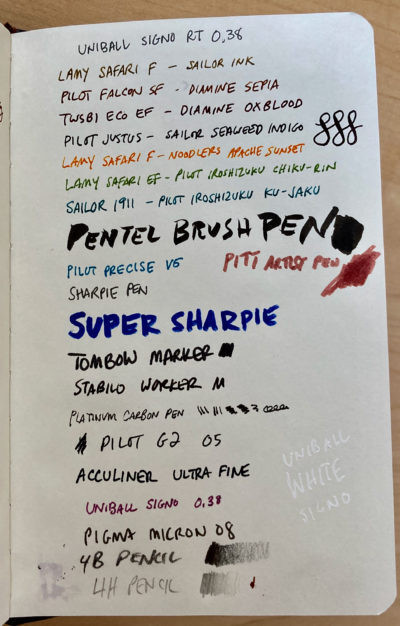 UNIBALL SIGNO RT 0.38
LAMY SAFARI F - SAILOR INK
PILOT FALCON SF - DIAMINE SEPIA
TWSBI ECO EF - DIAMINE OXBLOOD
PILOT JUSTUS - SAILOR SEAWEED INDIGO
LAMY SAFARI F - NOODLERS APACHE SUNSET
LAMY SAFARI EF - PILOT IROSHIZUKU CHIKU-RIN
SAILOR 1911 - PILOT IROSHIZUKU KU-JAKU
PENTEL BRUSH PEN
PILOT PRECISE V5
PITT ARTIST PEN
SHARPIE PEN
SUPER SHARPIE
TOMBOW MARKER
STABILO WORKER M
PLATINUM CARBON PEN
PILOT G2 05
ACCULINER ULTRA FINE
UNIBALL WHITE SIGNO
UNIBALL SIGNO 0.38
PIGMA MICRON 08
4B PENCIL
4H PENCIL